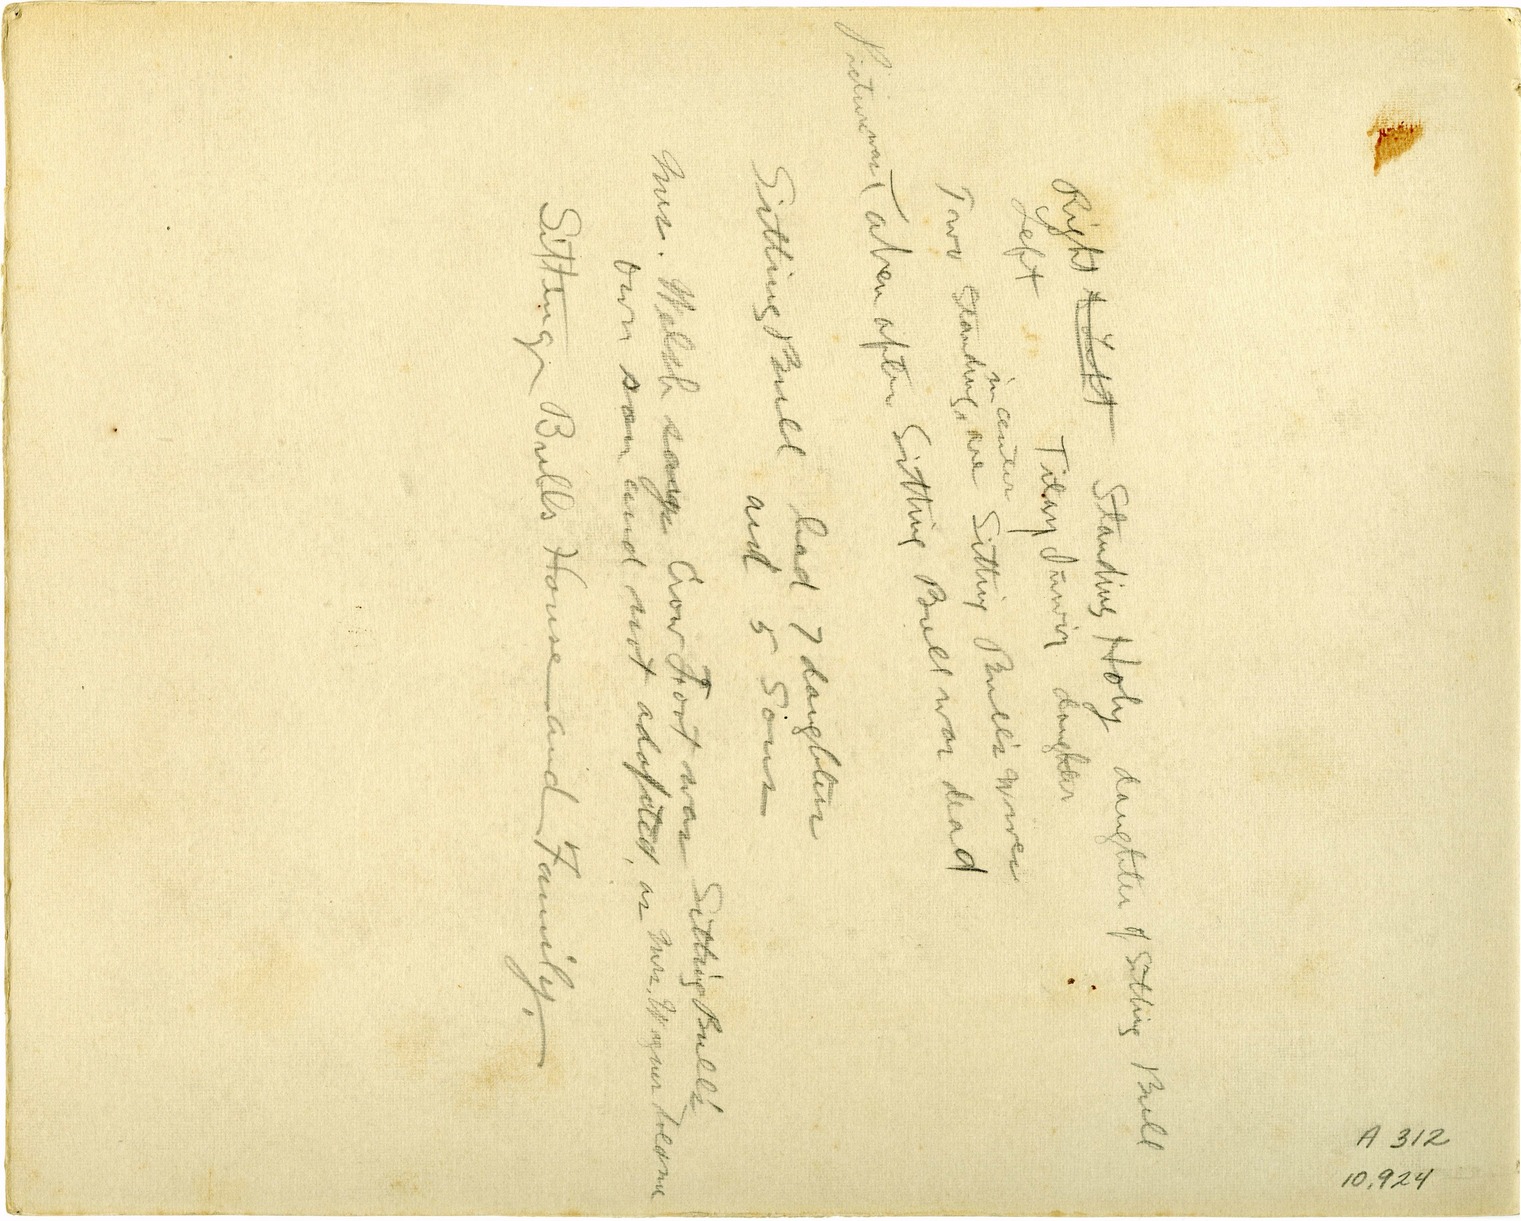 Right & Left Standing Holy daughter of Sitting Bull
Left daughter
in center
Two standing, are Sitting Bull's wives
Picture was Taken after Sitting Bull was dead
Sitting Bull had 7 daughters
and 5 Sons
Mrs. Walsh says Crow Foot was Sitting Bull's
own son and not adopted, as Mrs.
Sitting Bulls House and Family.
A 312
10,924